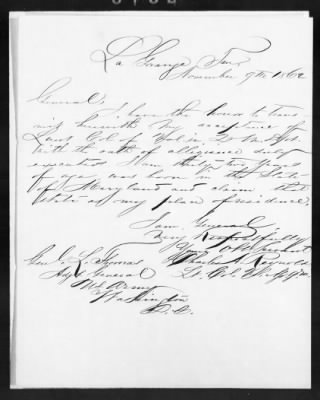 La Grange Ten
November 9th 1862
General,
I have the honor to trans
mit herewith my acceptance of
Lieut Col of
with the oath of allegiance duly
executed I am thirty two years
of age was born in the State
of Maryland and claim that
State as my place of residence.
I am General
Very Respectfully
Your Obt Servant
Charles A Reynolds
Lt. Col.
Gen. L. Thomas
Adjt General
U.S. Army
Washington
D.C.